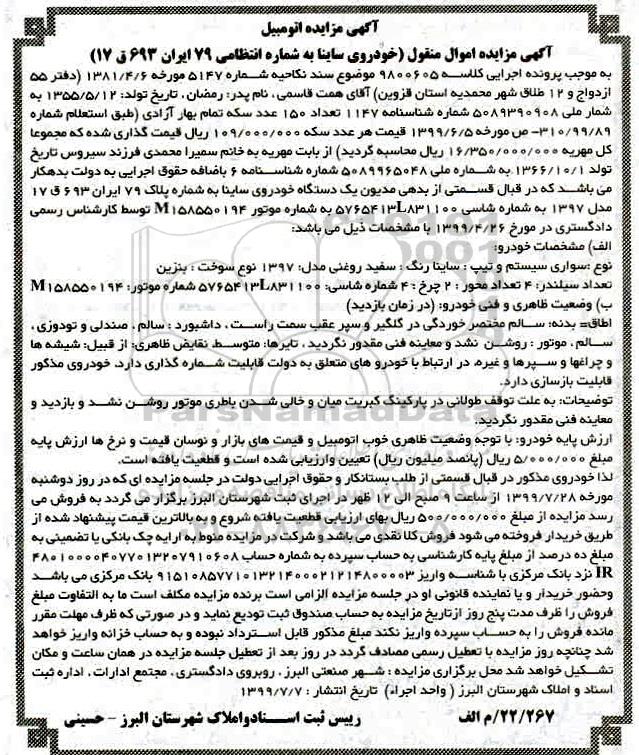 آگهی مزایده اتومبیل
آگهی مزایده اموال منقول (خودروی ساینا به شماره انتظامی ۷۹ ایران ۶۹۳ ق ۱۷)
به موجب پرونده اجرایی کلاسه ۹۸۰۰۶۰۵ موضوع سند نکاحیه شماره ۵۱۴۷ مورخه ۱۳۸۱/۴/۶ (دفتر ۵۵
ازدواج و ۱۲ طلاق شهر محمدیه استان قزوین) آقای همت قاسمی ، نام پدر: رمضان ، تاریخ تولد: ۱۳۵۵/۵/۱۲ به
شمار ملی ۵۰۸۹۳۹۰۹۰۸ شماره شناسنامه ۱۱۴۷ تعداد ۱۵۰ عدد سکه تمام بهار آزادی (طبق استعلام شماره
۳۱۰/۹۹/۸۹- ص مورخه ۱۳۹۹/۶/۵ قیمت هر عدد سکه ۱۰۹/۰۰۰/۰۰۰ ریال قیمت گذاری شده که مجموعا
کل مهریه ۱۶/۳۵۰/۰۰۰/۰۰۰ ریال محاسبه گردید) از بابت مهریه به خانم سمیرا محمدی فرزند سیروس تاریخ
تولد ۱۳۶۶/۱۰/۱ به شماره ملی ۵۰۸۹۹۶۵۰۴۸ شماره شناسنامه ۶ باضافه حقوق اجرایی به دولت بدهکار
می باشد که در قبال قسمتی از بدهی مدیون یک دستگاه خودروی ساینا به شماره پلاک ۷۹ ایران ۶۹۳ ق ۱۷
مدل ۱۳۹۷ به شماره شاسی ۵۷۶۵۴۱۳L۸۳۱۱۰۰ به شماره موتور M۱۵۸۵۵۰۱۹۴ توسط کارشناس رسمی
دادگستری در مورخ ۱۳۹۹/۴/۲۶ با مشخصات ذیل می باشد:
الف) مشخصات خودرو:
نوع :سواری سیستم و تیپ : ساینا رنگ : سفید روغنی مدل: ۱۳۹۷ نوع سوخت : بنزین
تعداد سیلندر: ۴ تعداد محور : ۲ چرخ : ۴ شماره شاسی: ۵۷۶۵۴۱۳L۸۳۱۱۰۰ شماره موتور: M۱۵۸۵۵۰۱۹۴
ب) وضعیت ظاهری و فنی خودرو: (در زمان بازدید)
اطاق= بدنه: سالم مختصر خوردگی در گلگیر و سپر عقب سمت راست ، داشبورد : سالم ، صندلی و تودوزی ،
سالم ، موتور : روشن نشد و معاینه فنی مقدور نگردید ، تایرها: متوسط، نقایض ظاهری: از قبیل: شیشه ها
و چراغها و سپرها و غیره، در ارتباط با خودرو های متعلق به دولت قابلیت شماره گذاری دارد. خودروی مذکور
قابلیت بازسازی دارد.
توضیحات: به علت توقف طولانی در پارکینگ کبریت میان و خالی شدن باطری موتور روشن نشد و بازدید و
معاینه فنی مقدور نگردید.
ارزش پایه خودرو: با توجه وضعیت ظاهری خوب اتومبیل و قیمت های بازار و نوسان قیمت و نرخ ها ارزش پایه
مبلغ ۵/۰۰۰/۰۰۰ ریال (پانصد میلیون ریال) تعیین وارزیابی شده است و قطعیت یافته است.
لذا خودروی مذکور در قبال قسمتی از طلب بستانکار و حقوق اجرایی دولت در جلسه مزایده ای که در روز دوشنبه
مورخه ۱۳۹۹/۷/۲۸ از ساعت ۹ صبح الی ۱۲ ظهر در اجرای ثبت شهرستان البرز برگزار می گردد به فروش می
رسد مزایده از مبلغ ۵۰۰/۰۰۰/۰۰۰ ریال بهای ارزیابی قطعیت یافته شروع و به بالاترین قیمت پیشنهاد شده از
طریق خریدار فروخته می شود فروش کلا نقدی می باشد و شرکت در مزایده منوط به ارایه چک بانکی یا تضمینی به
مبلغ ده درصد از مبلغ پایه کارشناسی به حساب سپرده به شماره حساب ۴۸۰۱۰۰۰۰۴۰۷۷۰۱۳۲۰۷۹۱۰۶۰۸
IR نزد بانک مرکزی با شناسه واریز ۹۱۵۱۰۸۵۷۷۱۰۱۳۲۱۴۰۰۰۲۱۲۱۴۸۰۰۰۰۳ بانک مرکزی می باشد
وحضور خریدار و یا نماینده قانونی او در جلسه مزایده الزامی است برنده مزایده مکلف است ما به التفاوت مبلغ
فروش را ظرف مدت پنج روز ازتاریخ مزایده به حساب صندوق ثبت تودیع نماید و در صورتی که ظرف مهلت مقرر
مانده فروش را به حساب سپرده واریز نکند مبلغ مذکور قابل استرداد نبوده و به حساب خزانه واریز خواهد
شد چنانچه روز مزایده با تعطیل رسمی مصادف گردد در روز بعد از تعطیل جلسه مزایده در همان ساعت و مکان
تشکیل خواهد شد محل برگزاری مزایده : شهر صنعتی البرز ، روبروی دادگستری ، مجتمع ادارات ، اداره ثبت
اسناد و املاک شهرستان البرز ( واحد اجراء) تاریخ انتشار : ۱۳۹۹/۷/۷
۲۲/۲۶۷/م الف رییس ثبت اسنادواملاک شهرستان البرز - حسینی
ParsNamadData